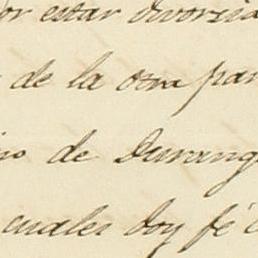 or estar divorzia
de la otra par
no de Durang
cuales doy fé